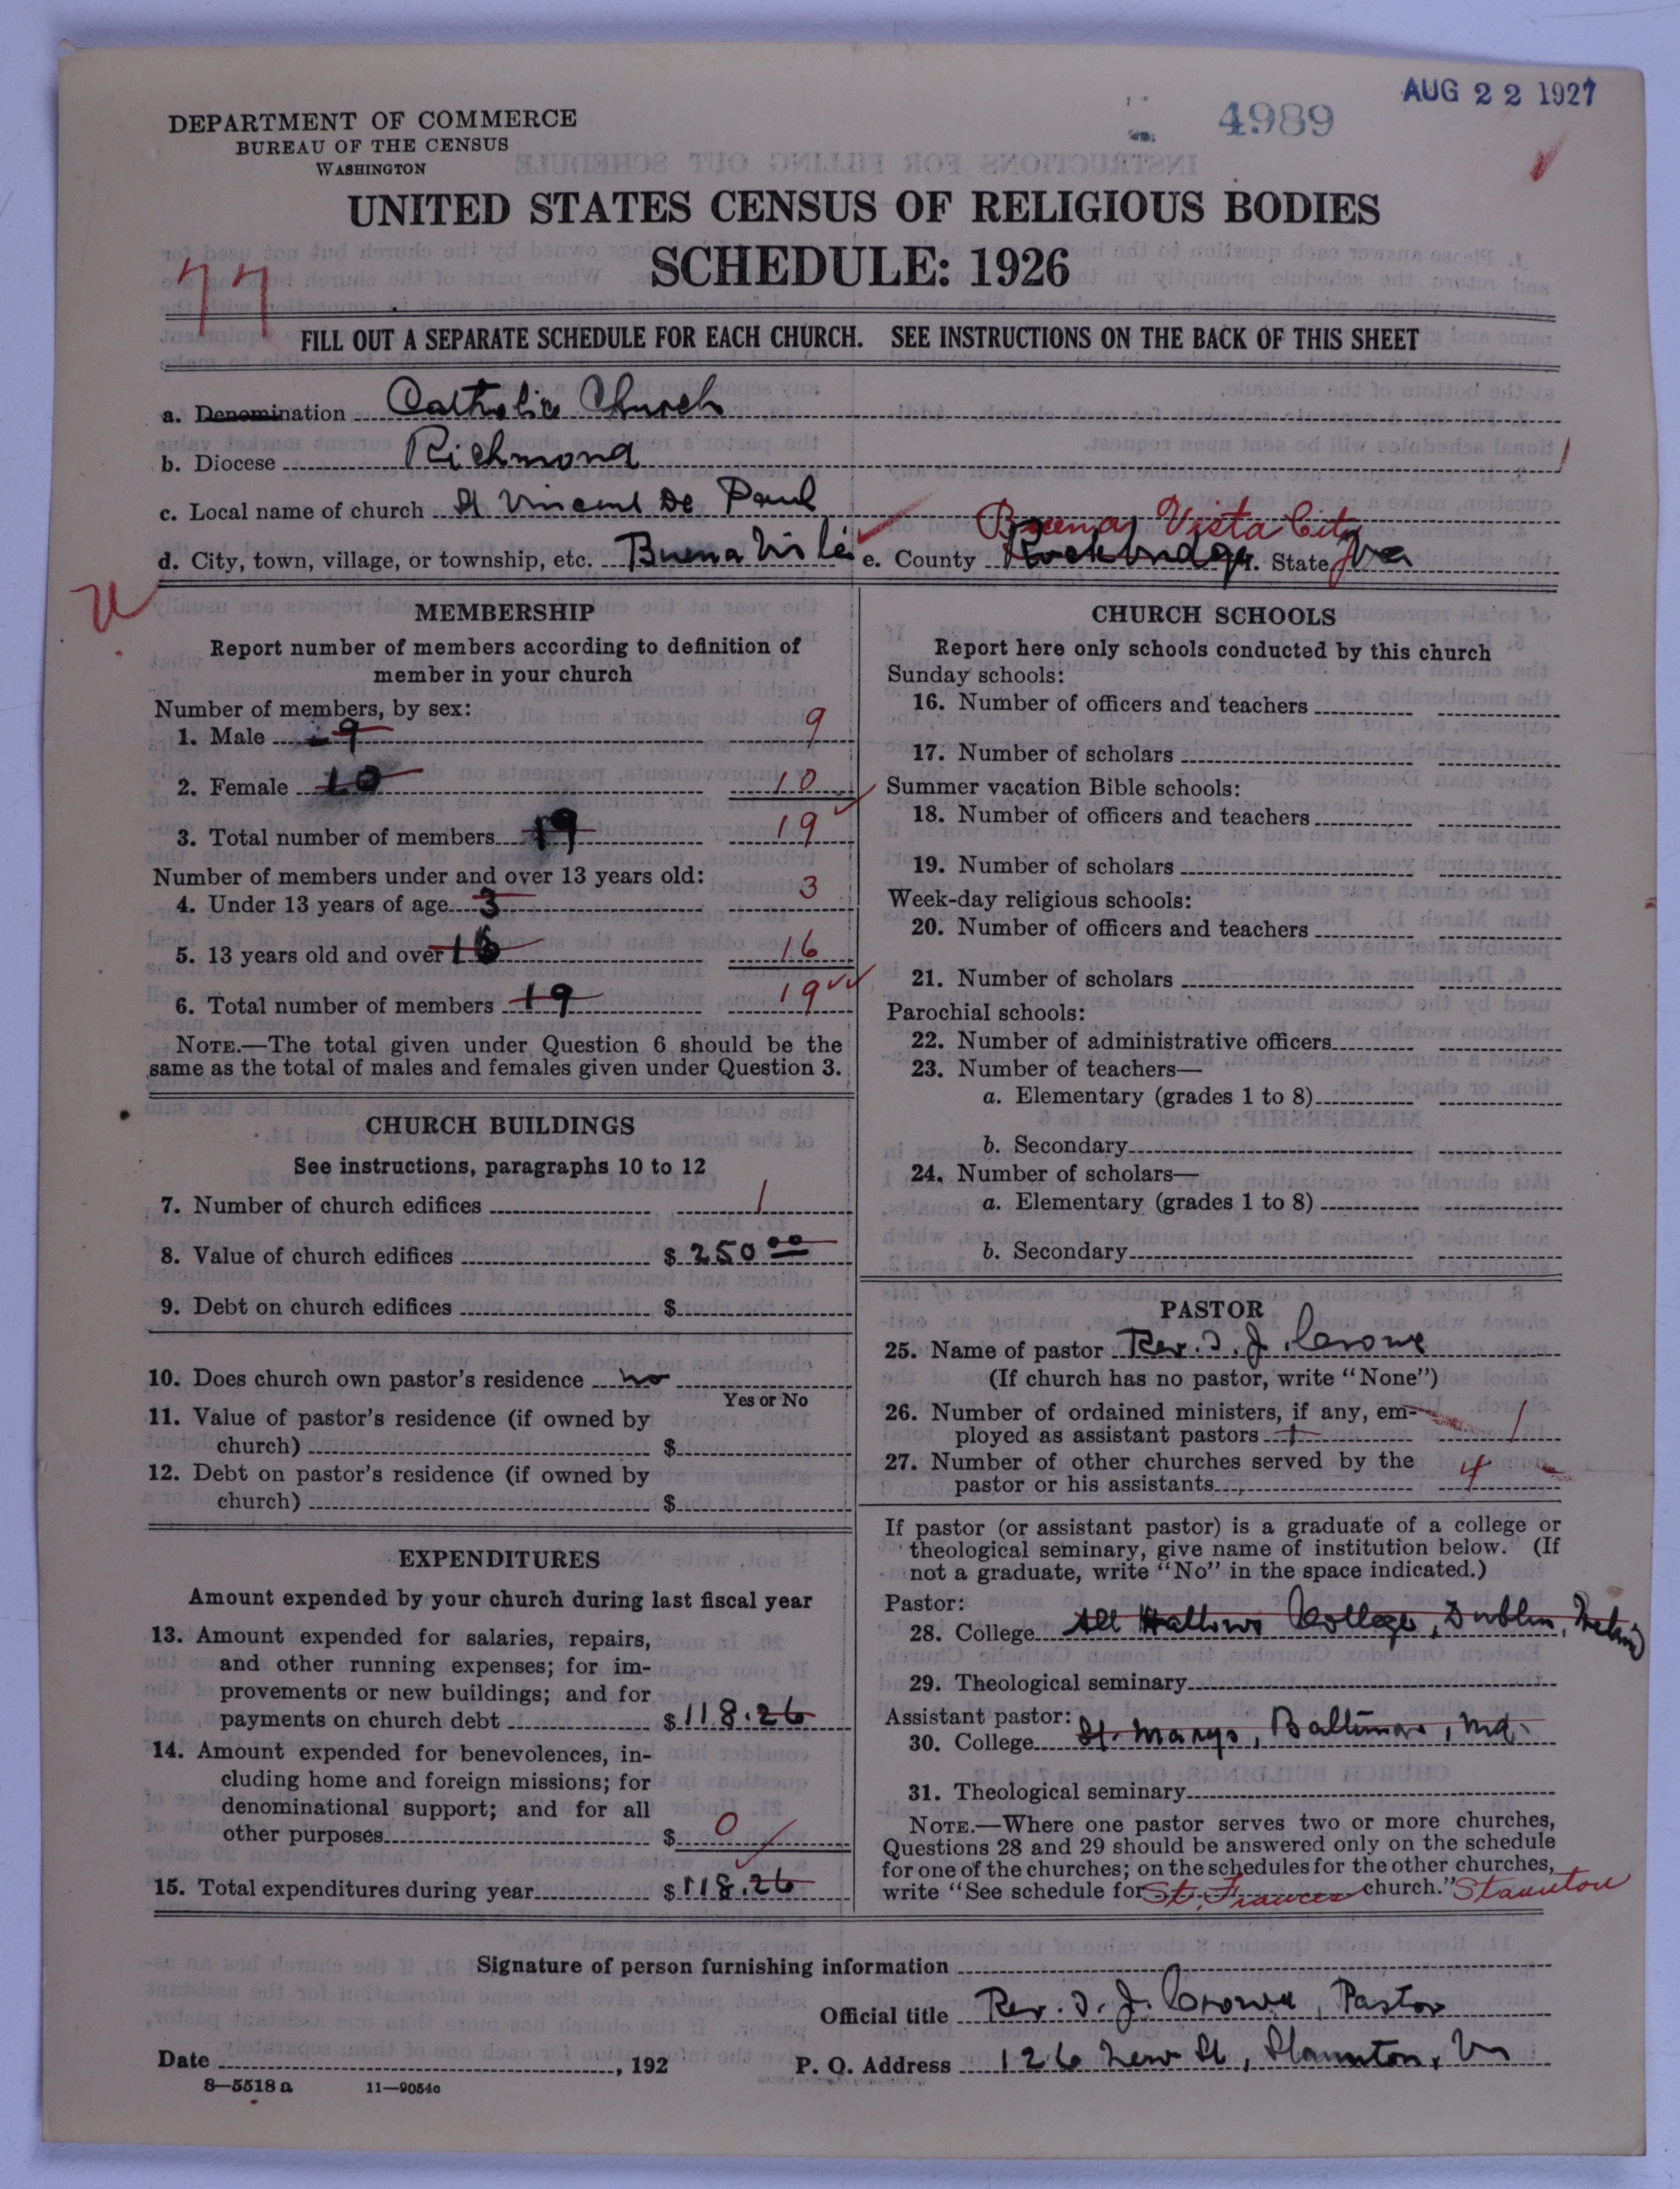 AUG 22 1927
4989
DEPARTMENT OF COMMERCE
BUREAU OF THE CENSUS
WASHINGTON
UNITED STATES CENSUS OF RELIGIOUS BODIES
SCHEDULE: 1926
77
FILL OUT A SEPARATE SCHEDULE FOR EACH CHURCH. SEE INSTRUCTIONS ON THE BACK OF THIS SHEET
a. Denomination Catholic Church
b. Diocese Richmond
c. Local name of church St Vincent De Paul
Buena Vista City
d. City, town, village, or township, etc. Buena Vista e. County Rockbridge f. State Va
MEMBERSHIP
Report number of members according to definition of
member in your church
Number of members, by sex:
1. Male 9 9
2. Female 10 10
3. Total number of members 19 19
Number of members under and over 13 years old:
4. Under 13 years of age 3 3
5. 13 years old and over 16 16
6. Total number of members 19 19
NOTE.—The total given under Question 6 should be the
same as the total of males and females given under Question 3.
CHURCH BUILDINGS
See instructions, paragraphs 10 to 12
7. Number of church edifices 1
8. Value of church edifices $ 250 00
9. Debt on church edifices $
10. Does church own pastor's residence no
Yes or No
11. Value of pastor's residence (if owned by
church) $
12. Debt on pastor's residence (if owned by
church) $
EXPENDITURES
Amount expended by your church during last fiscal year
13. Amount expended for salaries, repairs,
and other running expenses; for im-
provements or new buildings; and for
payments on church debt $ 118.26
14. Amount expended for benevolences, in-
cluding home and foreign missions; for
denominational support; and for all
other purposes $ 0
15. Total expenditures during year $ 118.26
CHURCH SCHOOLS
Report here only schools conducted by this church
Sunday schools:
16. Number of officers and teachers
17. Number of scholars
Summer vacation Bible schools:
18. Number of officers and teachers
19. Number of scholars
Week-day religious schools:
20. Number of officers and teachers
21. Number of scholars
Parochial schools:
22. Number of administrative officers
23. Number of teachers—
a. Elementary (grades 1 to 8)
b. Secondary
24. Number of scholars—
a. Elementary (grades 1 to 8)
b. Secondary
PASTOR
25. Name of pastor Rev. J. J. Crowe
(If church has no pastor, write "None")
26. Number of ordained ministers, if any, em-
ployed as assistant pastors 1 1
27. Number of other churches served by the
pastor or his assistants 4
If pastor (or assistant pastor) is a graduate of a college or
theological seminary, give name of institution below. (If
not a graduate, write "No" in the space indicated.)
Pastor:
28. College All Hallows College, Dublin,
29. Theological seminary
Assistant pastor:
30. College St. Marys, Baltimore, Md.
31. Theological seminary
NOTE.—Where one pastor serves two or more churches,
Questions 28 and 29 should be answered only on the schedule
for one of the churches; on the schedules for the other churches,
write "See schedule for St. Francis church." Staunton
Signature of person furnishing information
Official title Rev. J. J. Crowe, Pastor
Date , 192 P. O. Address 126 New St, Staunton, Va
8—5518 a 11—9054c